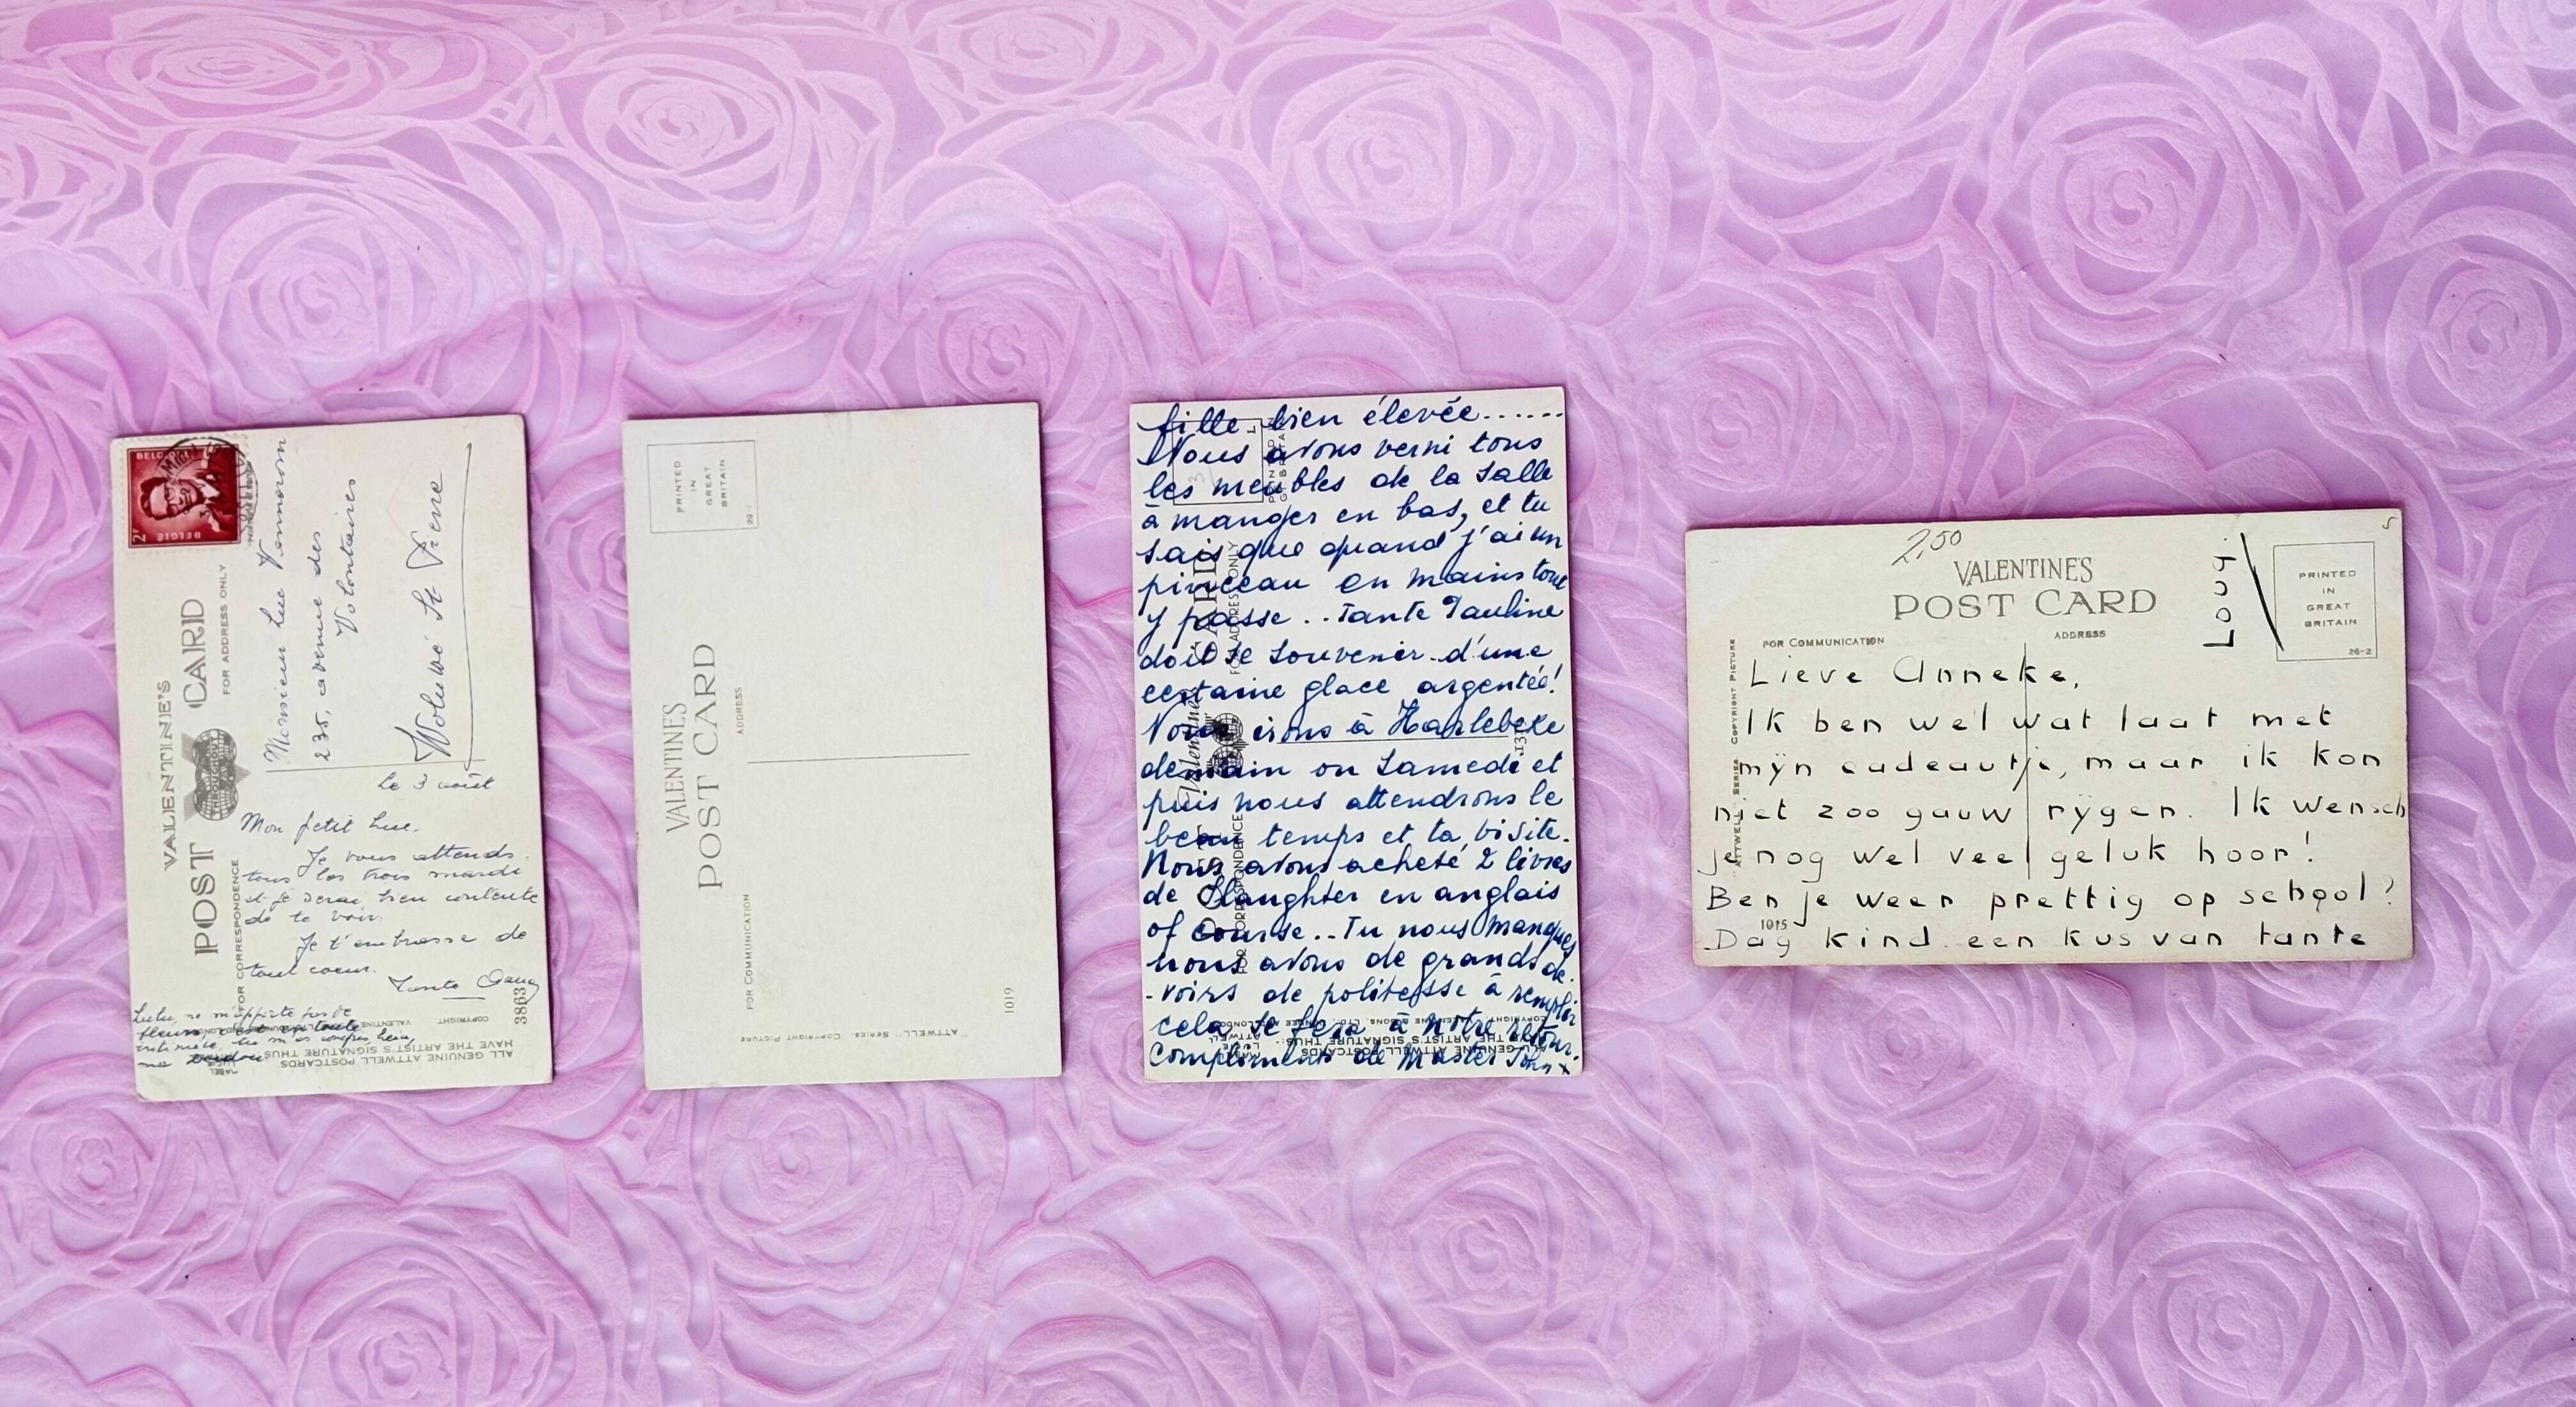 BELGIQUE
BELGIE
2F
VALENTINE'S
POST CARD
FOR ADDRESS ONLY
FOR CORRESPONDENCE
Monsieur Luc
235, avenue des
Volontaires
Woluwé St Pierre
le 3 août
Mon petit Luc.
Je vous attends
tous les trois mardi
et je serai bien contente
de te voir.
Je t'embrasse de
tout coeur.
Tante
Lulu, ne m'apporte pas de
fleurs c'est
inutile, tu m'as compris, hein,
3863
COPYRIGHT.
ALL GENUINE ATTWELL POSTCARDS
HAVE THE ARTIST'S SIGNATURE THUS
MABEL
LUCIE
PRINTED
IN
GREAT
BRITAIN
VALENTINE'S
POST CARD
ADDRESS
FOR COMMUNICATION
"ATTWELL" SERIES COPYRIGHT PICTURE
1019
fille bien élevée......
Nous avons verni tous
les meubles de la salle
à manger en bas, et tu
sais que quand j'ai un
pinceau en mains tout
y passe .. Tante Pauline
doit se souvenir d'une
certaine glace argentée!
Nous irons à Harlebeke
demain ou Samedi et
puis nous attendrons le
beau temps et ta visite.
Nous avons acheté 2 livres
de Slaughter en anglais
of course.. Tu nous manques
nous avons de grands de-
-voirs de politesse à remplir
cela se fera à notre retour.
Compliments de Master John x
2,50
VALENTINE'S
POST CARD
FOR COMMUNICATION
ADDRESS
PRINTED
IN
GREAT
BRITAIN
26-2
"ATTWELL" SERIES COPYRIGHT PICTURE
Louy.
Lieve Anneke,
Ik ben wel wat laat met
mijn cadeautje, maar ik kon
niet zoo gauw rijgen. Ik wensch
je nog wel veel geluk hoor!
Ben je weer prettig op school?
1015
Dag kind een kus van tante